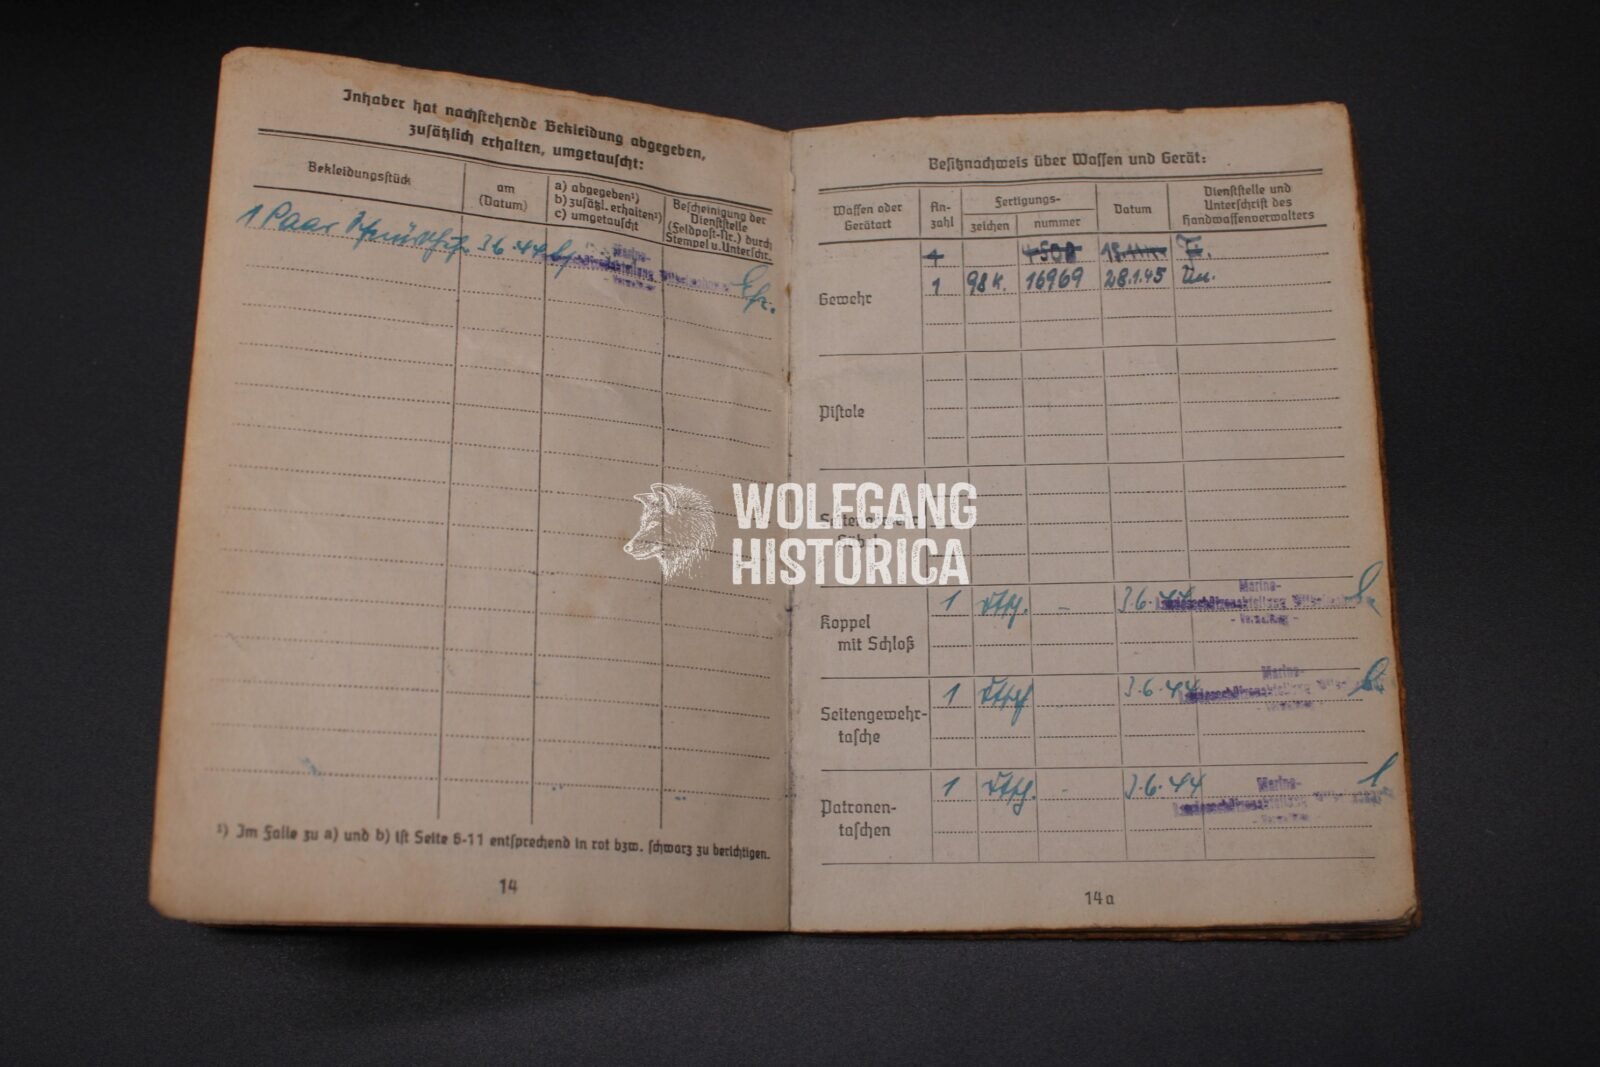 Inhaber hat nachstehende Bekleidung abgegeben,
zusätzlich erhalten, umgetauscht:
Bekleidungsstück
am
(Datum)
a) abgegeben¹)
b) zusätzl. erhalten¹)
c) umgetauscht
Bescheinigung der
Dienststelle
(Feldpost-Nr.) durch
Stempel u. Unterschr.
1 Paar Schnürschuhe 3.6.44
Marine-
¹) Im Falle zu a) und b) ist Seite 8-11 entsprechend in rot bzw. schwarz zu berichtigen.
14
Besitznachweis über Waffen und Gerät:
Waffen oder
Gerätart
An-
zahl
Fertigungs-
zeichen
nummer
Datum
Dienststelle und
Unterschrift des
Handwaffenverwalters
Gewehr
1
1 98 K. 16969 28.1.45
Pistole
Koppel
mit Schloß
1 Dtsch. - 3.6.44
Marine-
Seitengewehr-
tasche
1 Dtsch 3.6.44
Marine-
Patronen-
taschen
1 Dtsch. - 3.6.44
Marine-
14a
WOLFGANG
HISTORICA